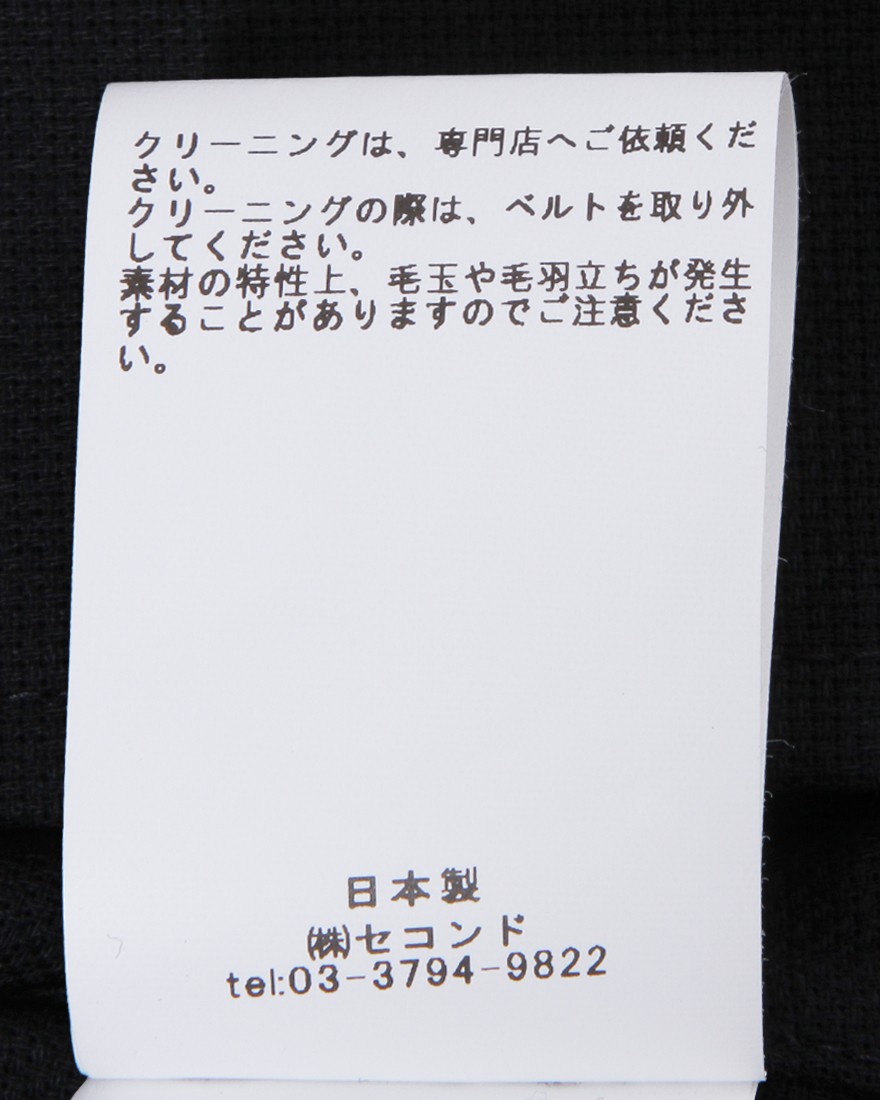 クリーニングは、専門店へご依頼くだ
さい。
クリーニングの際は、ベルトを取り外
してください。
素材の特性上、毛玉や毛羽立ちが発生
することがありますのでご注意くださ
い。
日本製
㈱セコンド
tel:03-3794-9822